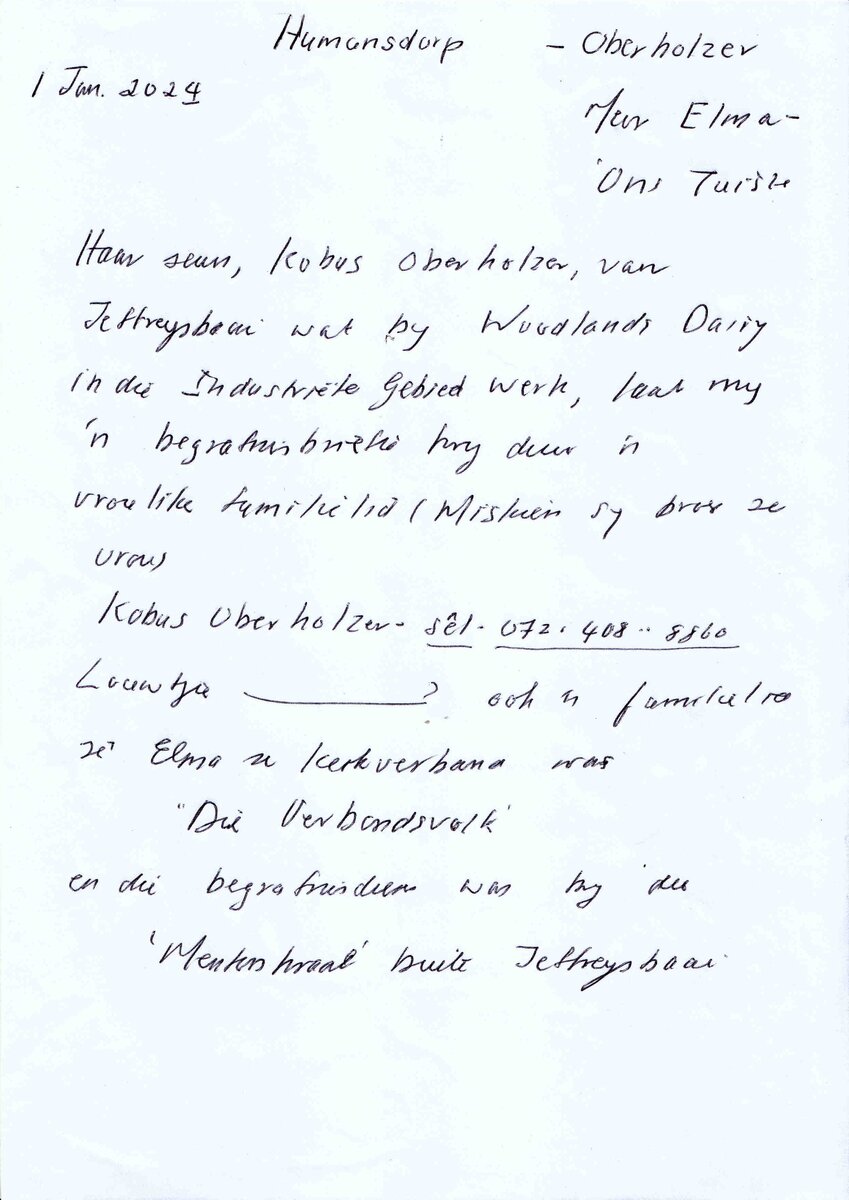 Humansdorp - Oberholzer
1 Jan. 2024
Mev Elma-
'Ons Tuiste
Haar seun, Kobus Oberholzer, van
Jeffreysbaai wat by Woodlands Dairy
in die Industriële Gebied werk, laat my
'n begrafnisbriefie kry deur 'n
vroulike familielid (Miskien sy broer se
vrou)
Kobus Oberholzer - sêl - 072. 408 .. 8860
Louwtjie ________? ook 'n familielid
sê Elma se kerkverband was
"Die Verbondsvolk"
en die begrafnisdiens was by die
'Mentorskraal' buite Jeffreysbaai